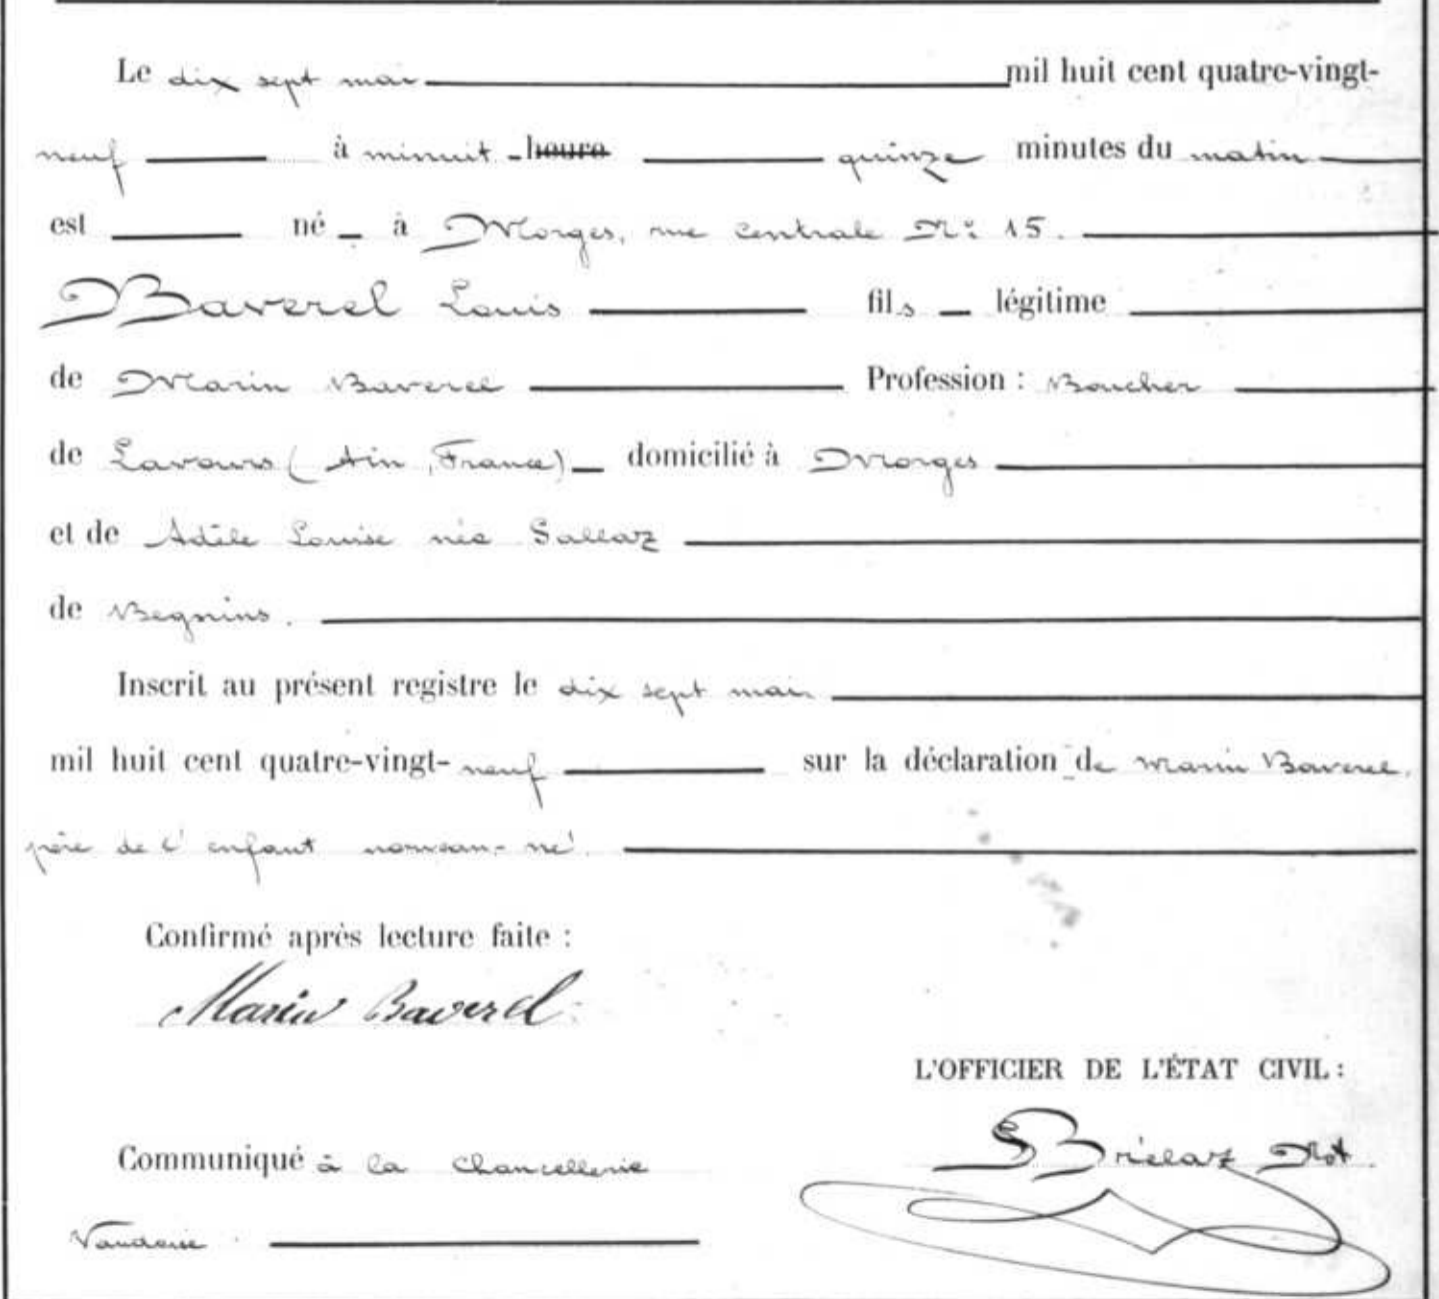 Le dix sept mai mil huit cent quatre-vingt-
neuf à minuit heure quinze minutes du matin
est né à Morges, rue centrale No: 15.
Baverel Louis fils légitime
de Marin Baverel Profession : Boucher
de Lavours (Ain, France) domicilié à Morges
et de Adèle Louise née Sallaz
de Begnins.
Inscrit au présent registre le dix sept mai
mil huit cent quatre-vingt-neuf sur la déclaration de Marin Baverel,
père de l'enfant nouveau-né.
Confirmé après lecture faite :
Marin Baverel
L'OFFICIER DE L'ÉTAT CIVIL :
Communiqué à la Chancellerie
Not.
Vaudoise.